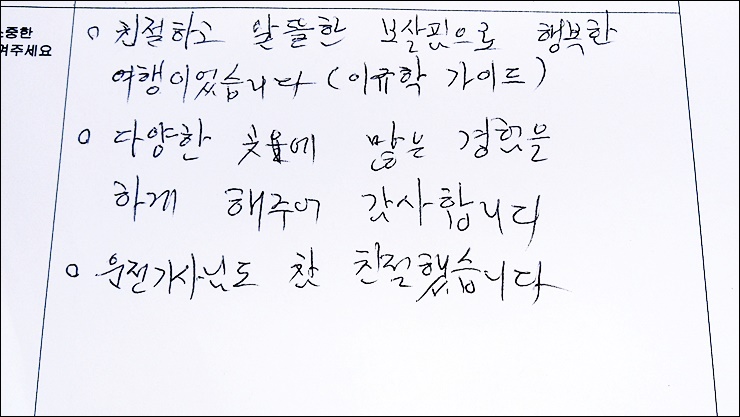 소중한
여주세요
o 친절하고 알뜰한 보살핌으로 행복한
여행이었습니다 (이규학 가이드)
o 다양한 에 많은 경험을
하게 해주어 감사합니다
o 운전기사님도 참 친절했습니다